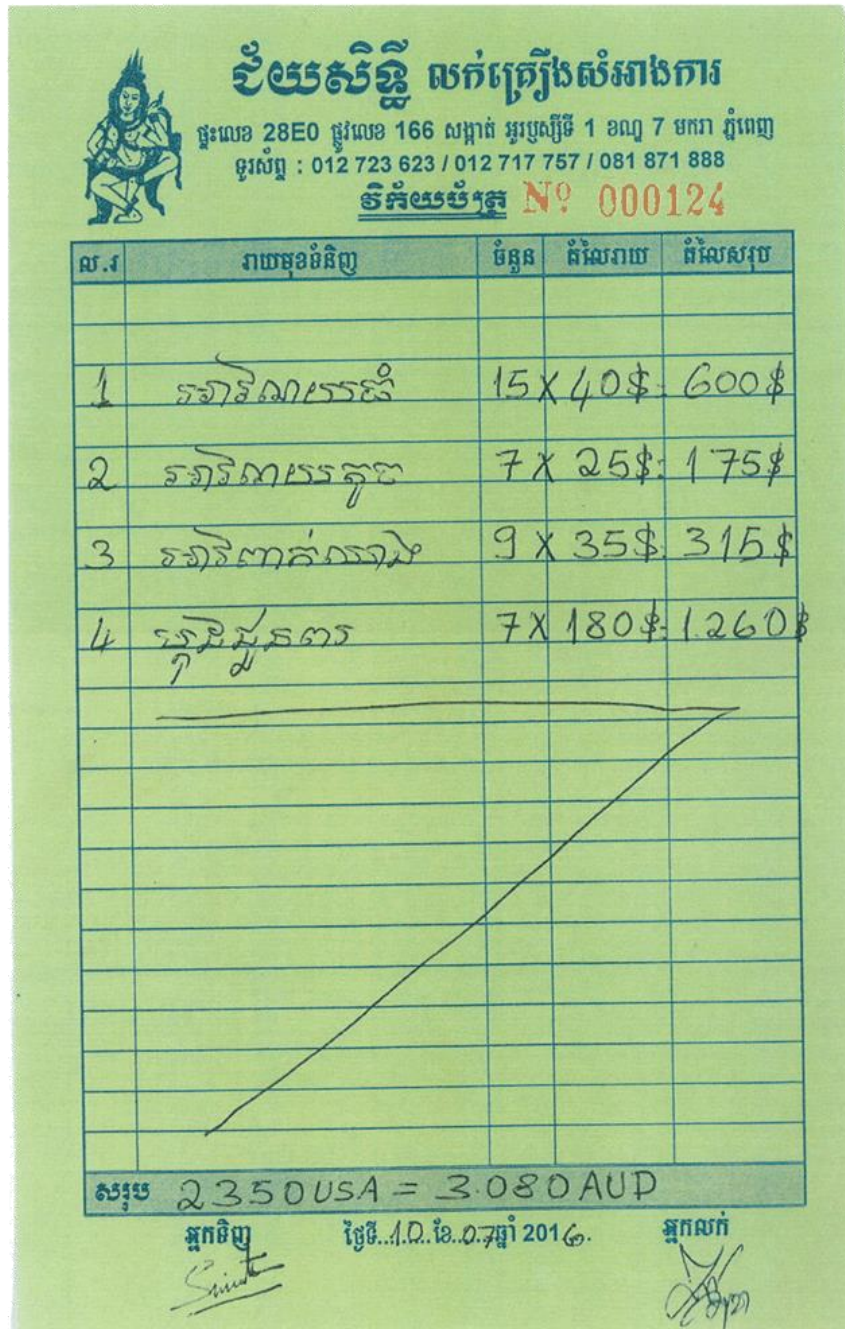 ជ័យសិទ្ធី លក់គ្រឿងសំអាងការ
ផ្ទះលេខ 28E0 ផ្លូវលេខ 166 សង្កាត់ អូរឫស្សីទី 1 ខណ្ឌ 7 មករា ភ្នំពេញ
ទូរស័ព្ទ : 012 723 623 / 012 717 757 / 081 871 888
វិក័យប័ត្រ Nº 000124
ល.រ រាយមុខទំនិញ ចំនួន តំលៃរាយ តំលៃសរុប
1 15 X 40$ : 600$
2 7 X 25$ : 175$
3 9 X 35$ : 315$
4 ជូនពរ 7 X 180$ : 1.260$
សរុប 2350 USA = 3.080 AUD
អ្នកទិញ ថ្ងៃទី..10..ខែ..07..ឆ្នាំ 2016. អ្នកលក់